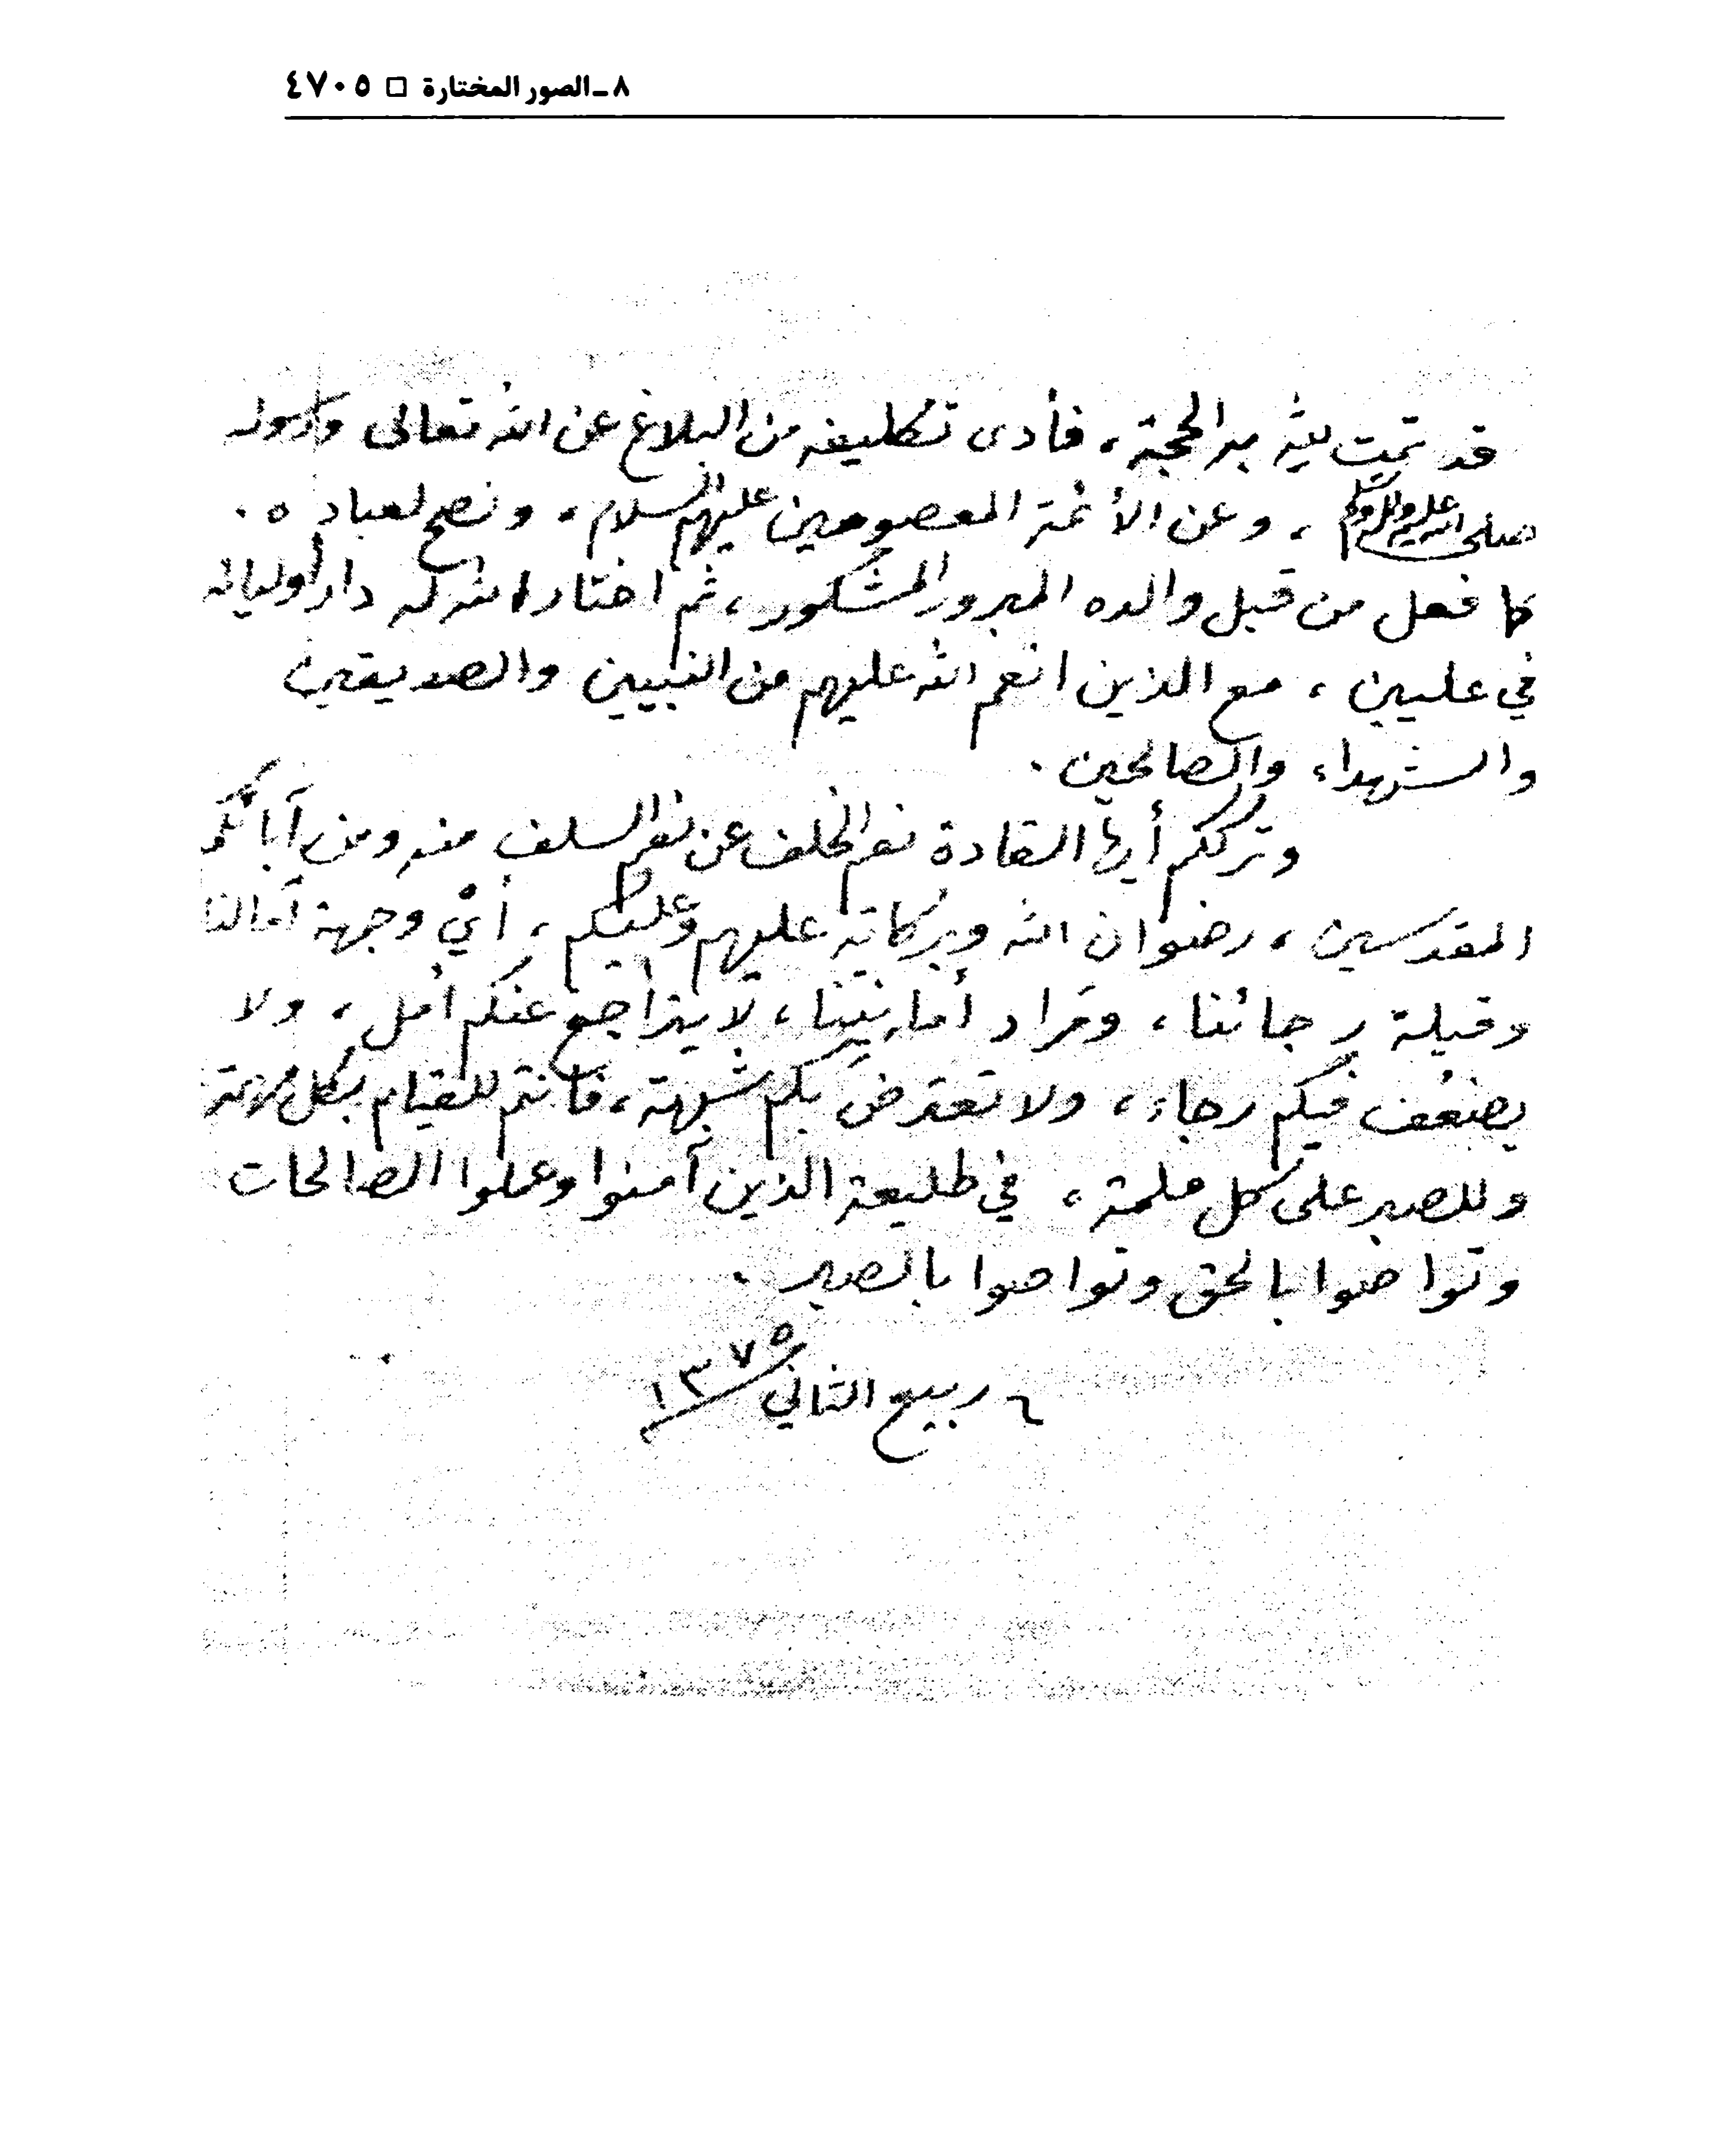 ٨ـ الصور المختارة □ ٤٧٠٥
قد تمت لله به الحجة، فأدى تكليفه من البلاغ عن الله تعالى ورسوله
صلى الله عليه وآله وسلم، وعن الأئمة المعصومين عليهم السلام، ونصح لعباده.
كما فعل من قبل والده المبرور المشكور، ثم اختار الله له دار أوليائه
في عليين، مع الذين انعم الله عليهم من النبيين والصديقين
والشهداء والصالحين.
وترككم أيها القادة نعم الخلف عن نعم السلف منه ومن آبائكم
المقدسين، رضوان الله وبركاته عليهم وعليكم، أي وجهة آمالنا
وقبلة رجائنا، ومراد أمانينا، لا يتراجع عنكم أمل، ولا
يضعف فيكم رجاء، ولا تعترض بكم شبهة، فانتم للقيام بكل مهمة
وللصبر على كل ملمة، في طليعة الذين آمنوا وعملوا الصالحات
وتواصوا بالحق وتواصوا بالصبر.
٤ ربيع الثاني ١٣٧٥